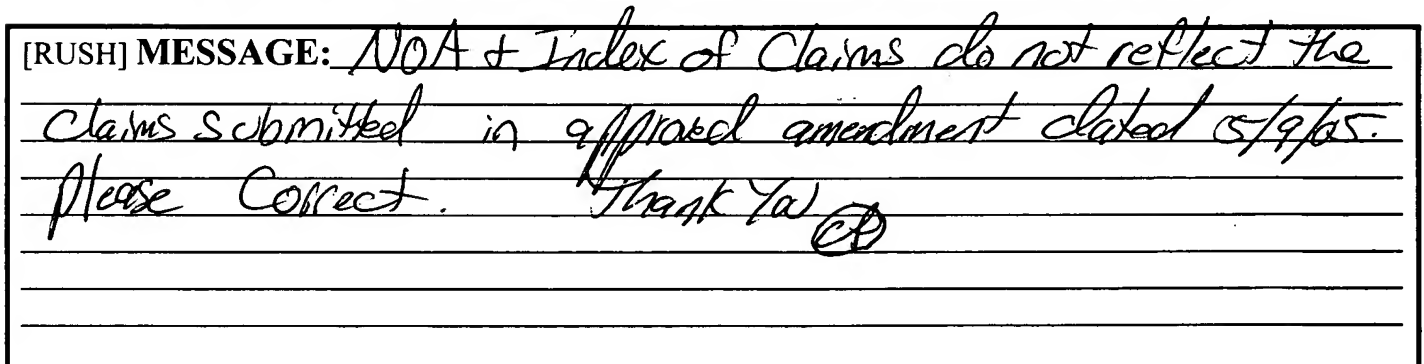 [RUSH] MESSAGE: NOA + Index of Claims do not reflect the
Claims submitted in approved amendment dated 5/9/05.
Please Correct. Thank You